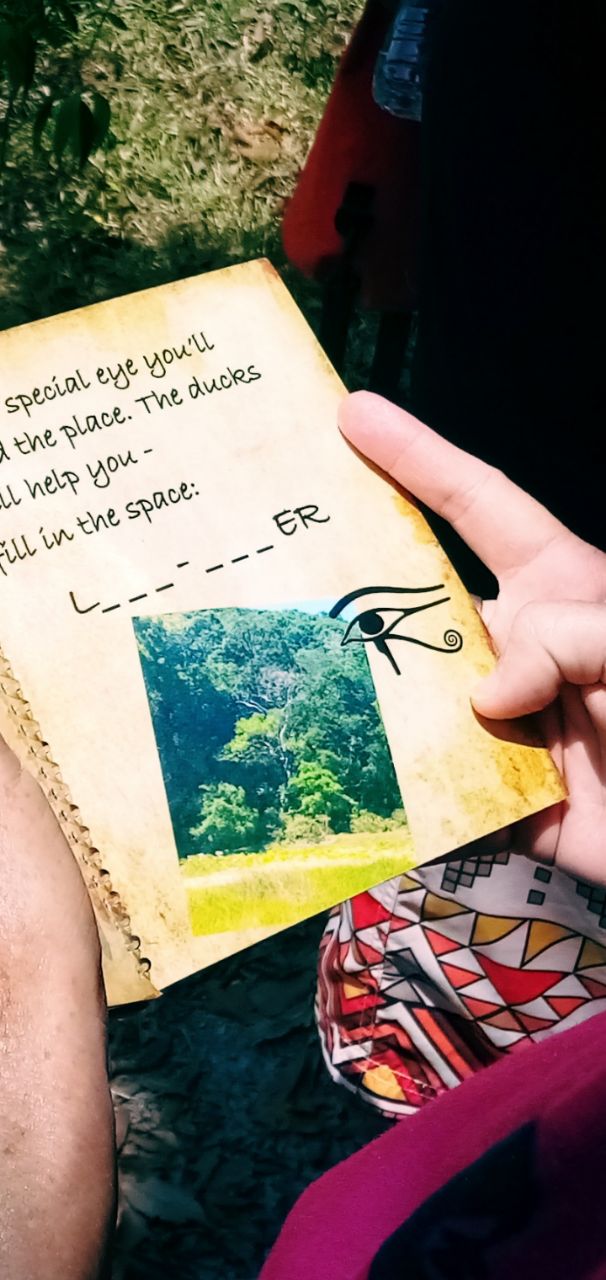 special eye you'll
the place. The ducks
help you -
fill in the space:
L _ _ _ - _ _ _ ER